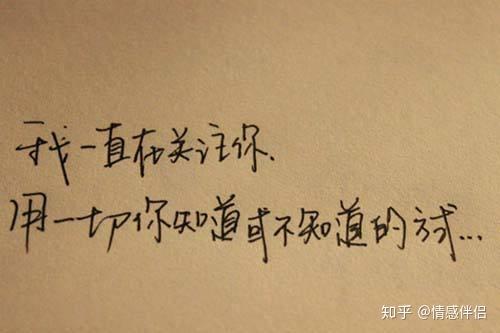 我一直在关注你.
用一切你知道或不知道的方式...
知乎 @情感伴侣